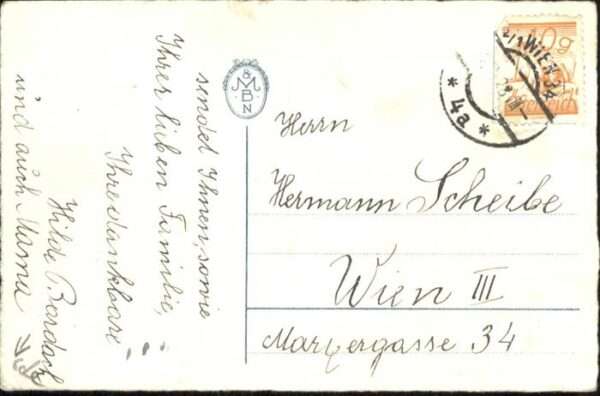 sendet Ihnen, sowie
Ihrer lieben Familie,
Ihre dankbare
Hilde
und auch Mama
M
&
B
N
Herrn
Hermann Scheibe
Wien III
Marxergasse 34
10g
WIEN 34
* 4a *